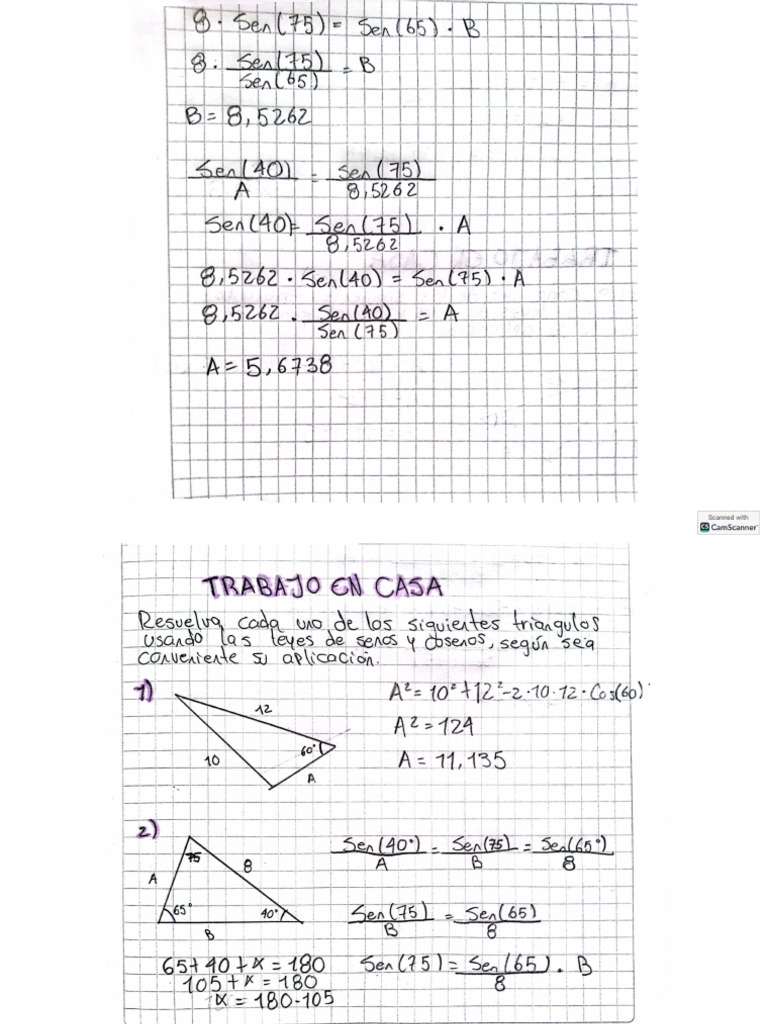 8 · Sen(75) = Sen(65) · B
8 · Sen(75)/Sen(65) = B
B = 8,5262
Sen(40)/A = Sen(75)/8,5262
Sen(40) = Sen(75)/8,5262 · A
8,5262 · Sen(40) = Sen(75) · A
8,5262 · Sen(40)/Sen(75) = A
A = 5,6738
Scanned with
CamScanner
TRABAJO EN CASA
Resuelva cada uno de los siguientes triangulos
usando las leyes de senos y cosenos, según sea
conveniente su aplicación.
1)
12
60°
10
A
A² = 10² + 12² - 2 · 10 · 12 · Cos(60)
A² = 124
A = 11,135
2)
75
A
8
65°
40°
B
Sen(40°)/A = Sen(75)/B = Sen(65°)/8
Sen(75)/B = Sen(65)/8
65 + 40 + x = 180
105 + x = 180
x = 180 - 105
Sen(75) = Sen(65)/8 · B